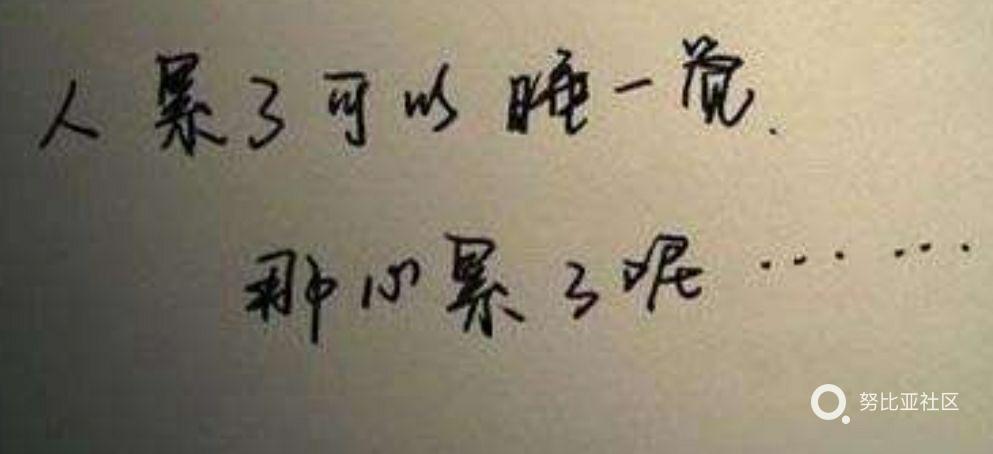 人累了可以睡一觉.
那心累了呢……
努比亚社区